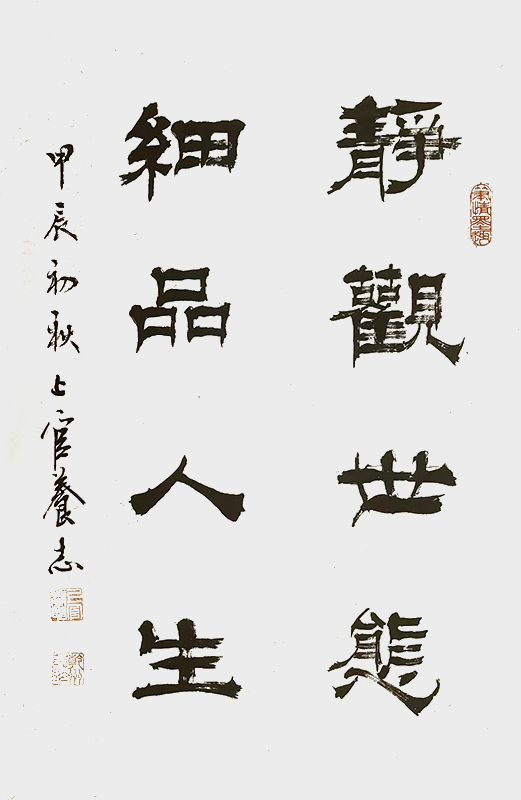 靜觀世態
細品人生
甲辰初秋上官養志